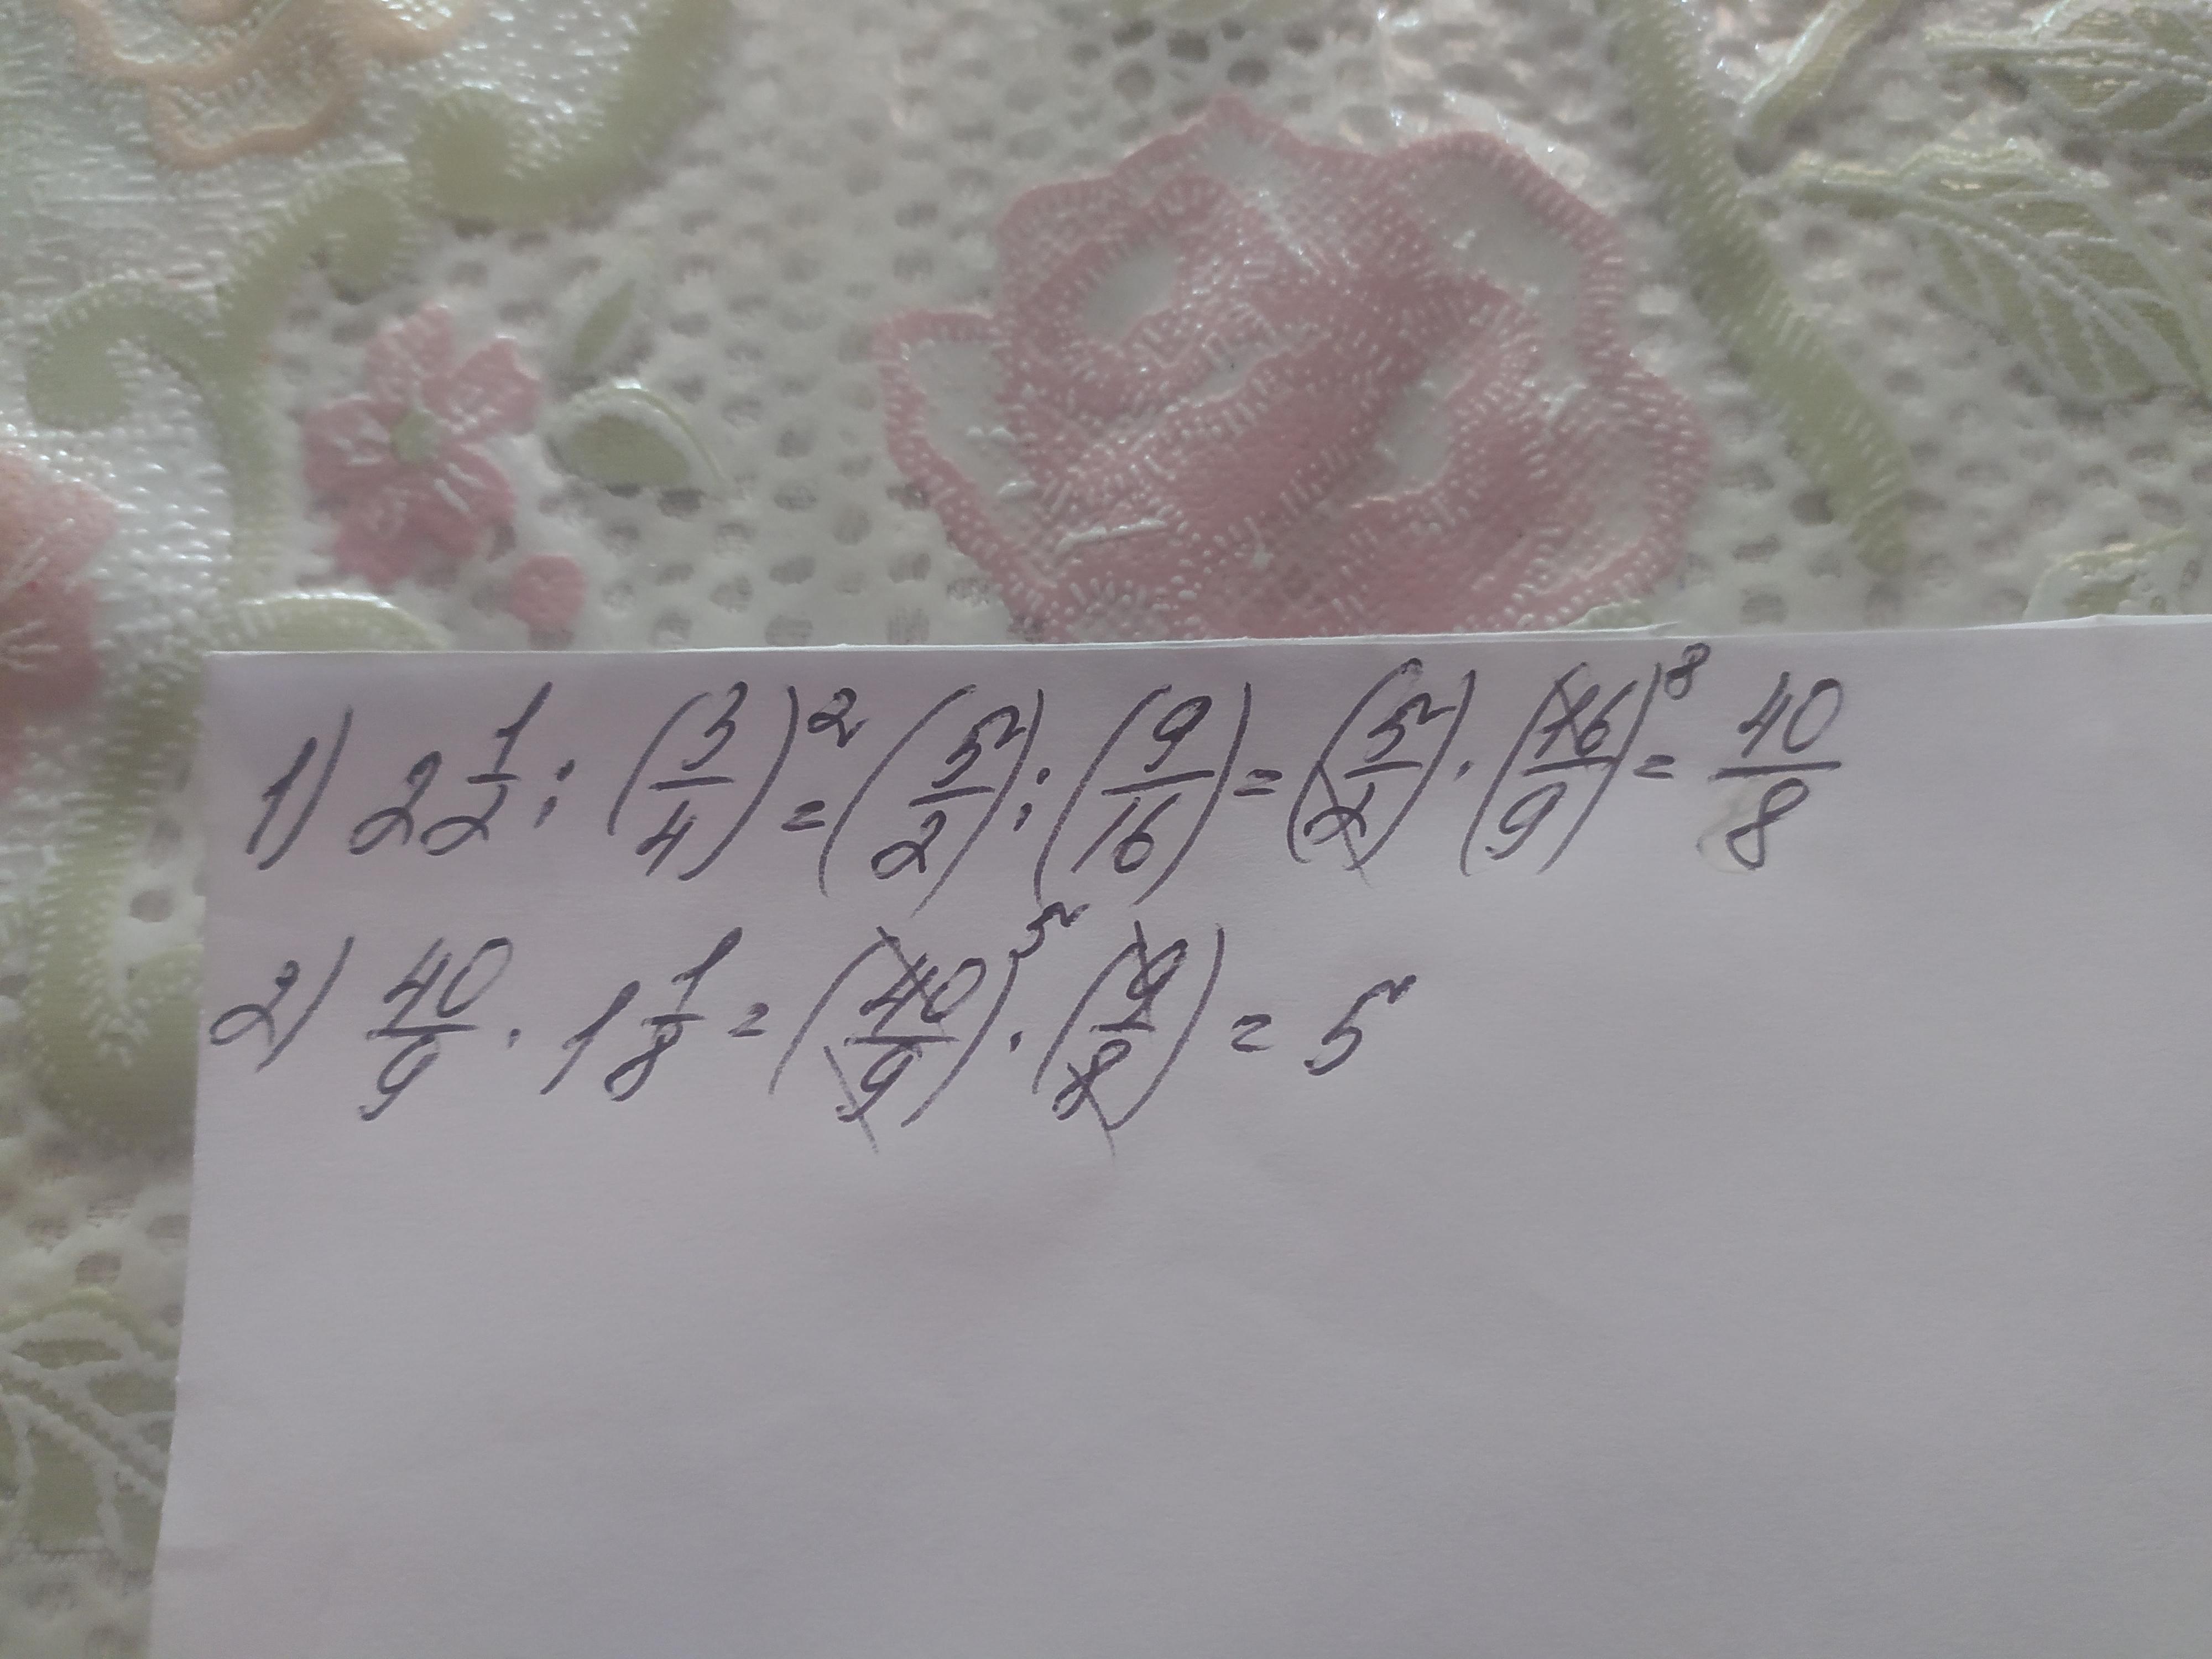 1) 2 1/2 : (3/4)² = (5/2) : (9/16) = (5/2) · (16/9)⁸ = 40/8
2) 40/9 · 1 1/8 = (40/9)⁵ · (9/8) = 5